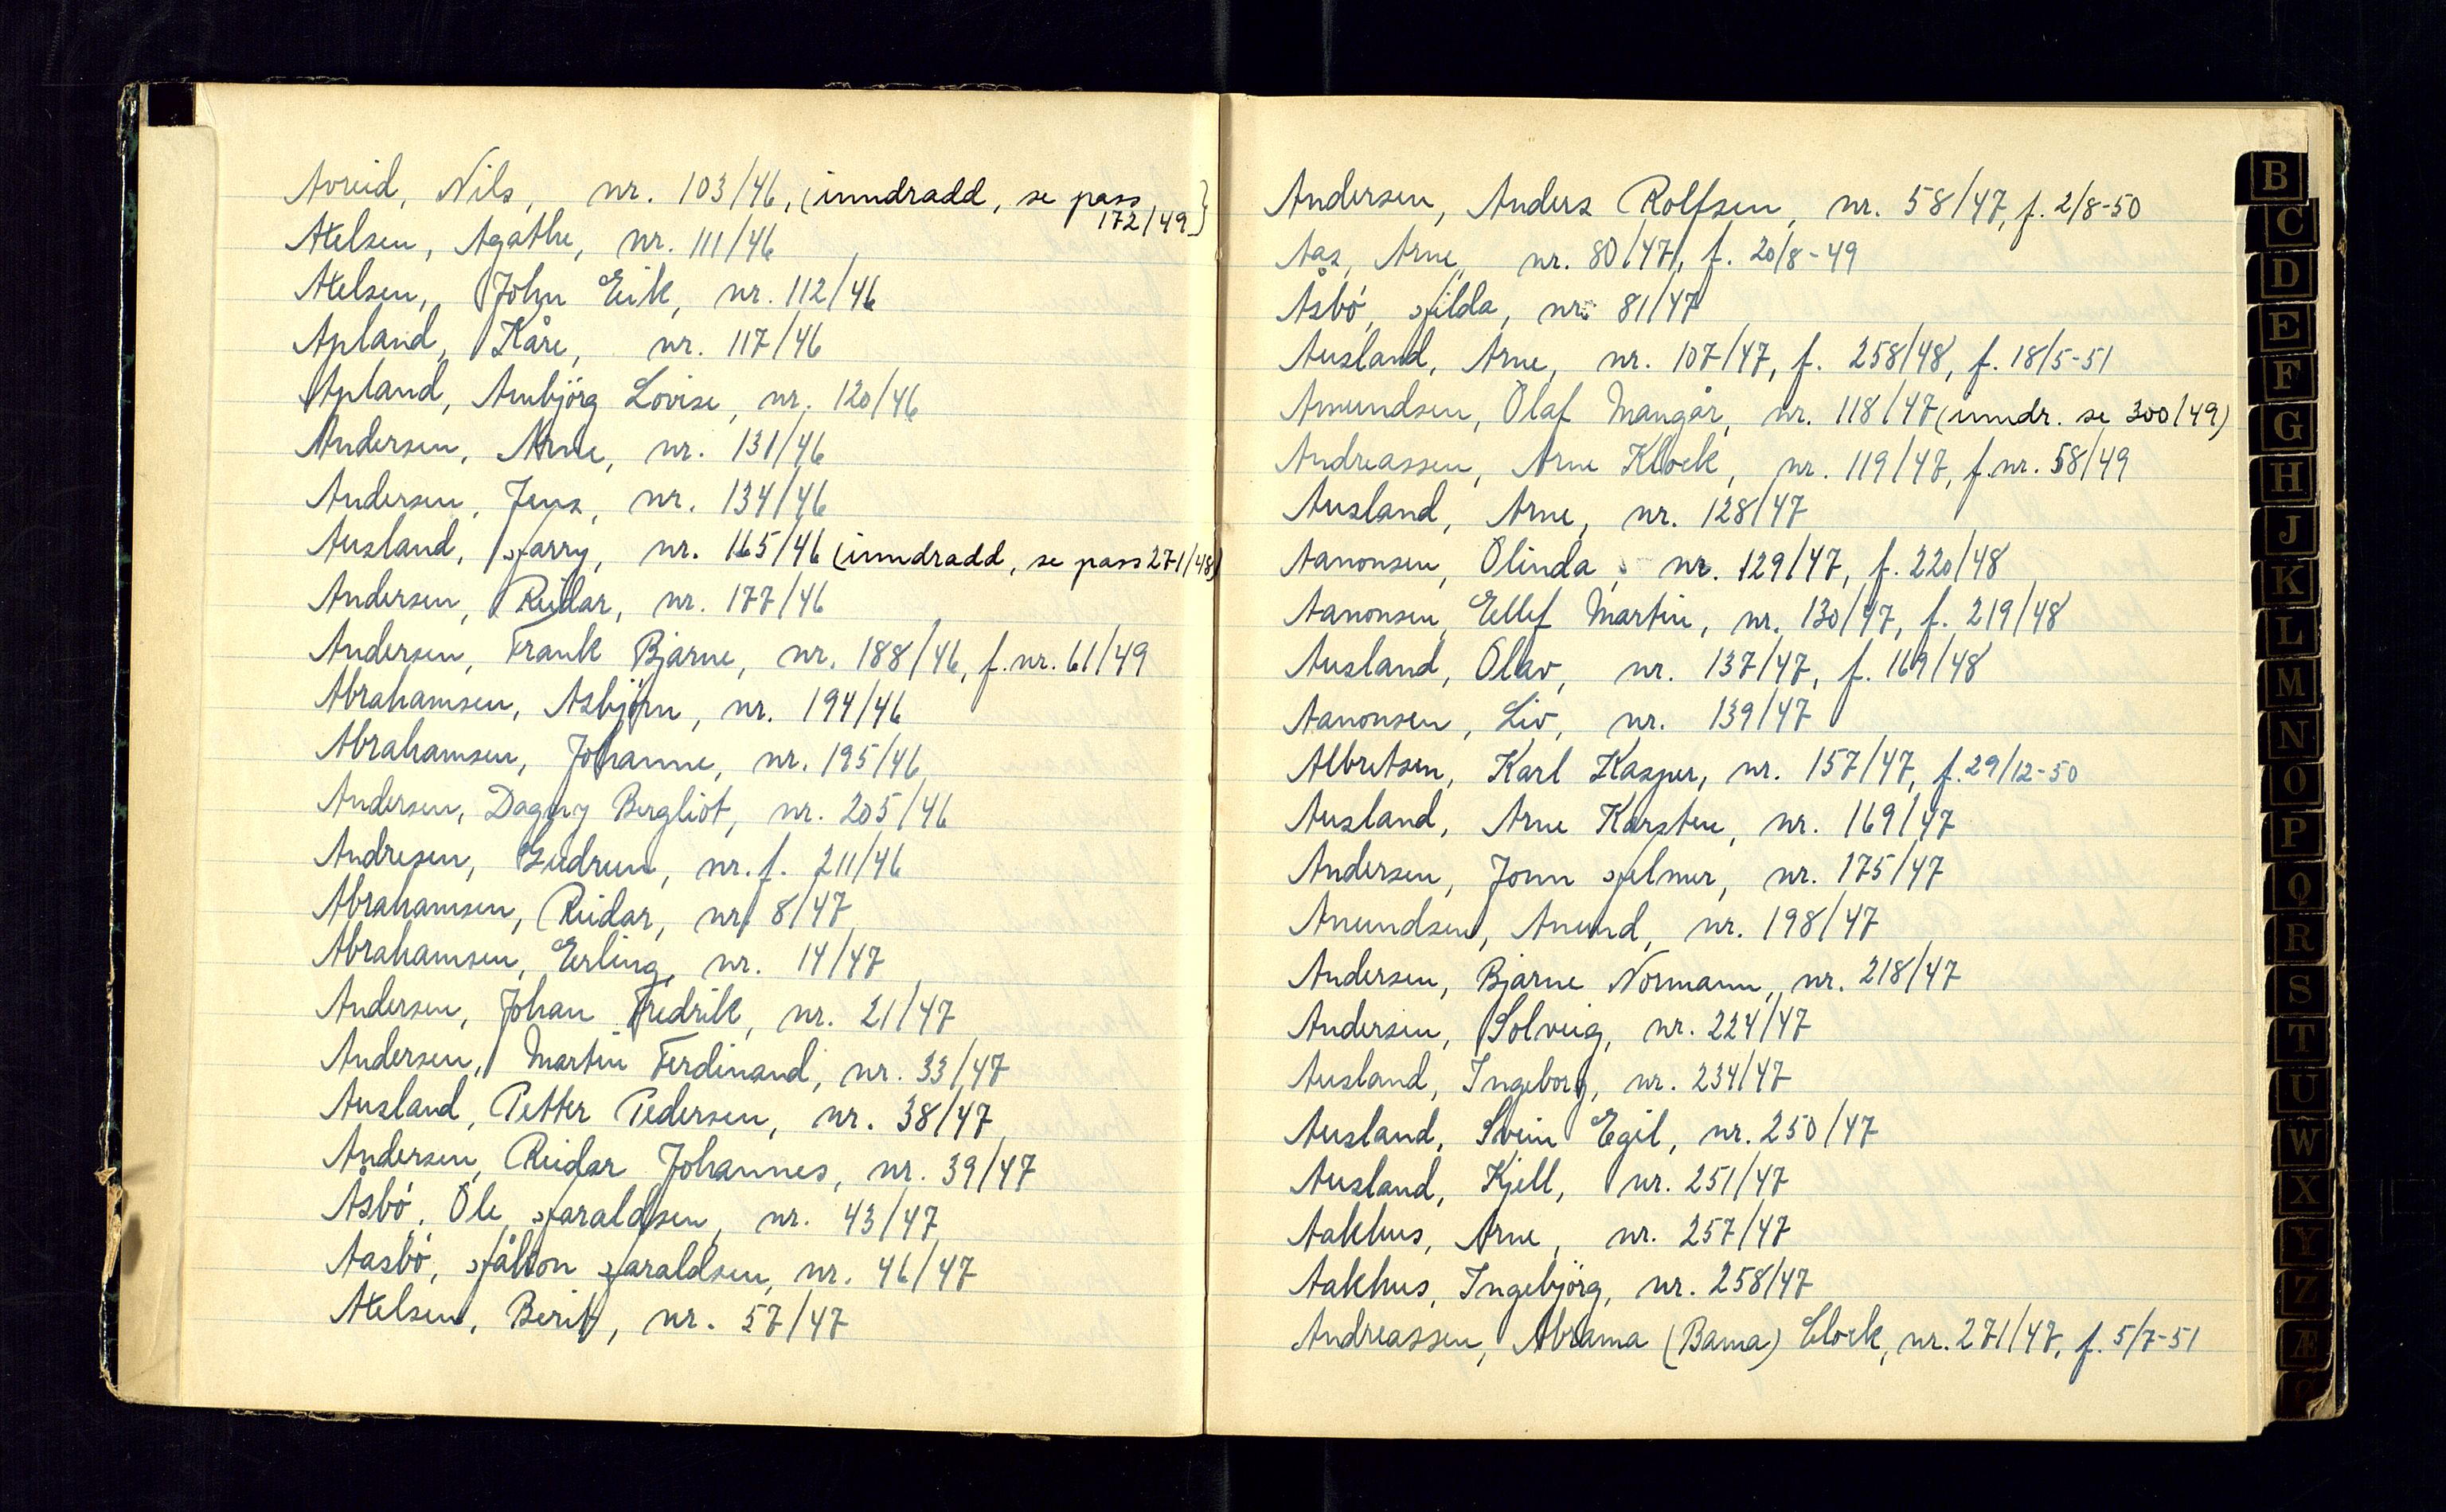 Avreid, Nils, nr. 103/46, (inndradd, se pass
172/49)
Axelsen, Agathe, nr. 111/46
Axelsen, John Eirik, nr. 112/46
Apland, Kåre, nr. 117/46
Apland, Arnbjörg Lovise, nr. 120/46
Andersen, Arne, nr. 131/46
Andersen, Jens, nr. 134/46
Ausland, Harry, nr. 165/46 (inndradd, se pass 271/48)
Andersen, Reidar, nr. 177/46
Andersen, Frank Bjarne, nr. 188/46, f. nr. 61/49
Abrahamsen, Asbjörn, nr. 194/46
Abrahamsen, Johanne, nr. 195/46
Andersen, Dagny Bergliot, nr. 205/46
Andresen, Gudrun, nr. f. 211/46
Abrahamsen, Reidar, nr. 8/47
Abrahamsen, Erling, nr. 14/47
Andersen, Johan Fredrik, nr. 21/47
Andersen, Martin Ferdinand, nr. 33/47
Ausland, Petter Pedersen, nr. 38/47
Andersen, Reidar Johannes, nr. 39/47
Åsbö, Ole Haraldsen, nr. 43/47
Aasbö, Håkon Haraldsen, nr. 46/47
Axelsen, Berit, nr. 57/47
Andersen, Anders Rolfsen, nr. 58/47, f. 2/8-50
Aas, Arne, nr. 80/47, f. 20/8-49
Åsbö, Hilda, nr. 81/47
Ausland, Arne, nr. 107/47, f. 258/48, f. 18/5-51
Amundsen, Olaf Mangår, nr. 118/47 (inndr. se 300/49)
Andreassen, Arne Klock, nr. 119/47, f. nr. 58/49
Ausland, Arne, nr. 128/47
Aanonsen, Olinda, nr. 129/47, f. 220/48
Aanonsen, Ellef Martin, nr. 130/47, f. 219/48
Ausland, Olav, nr. 137/47, f. 169/48
Aanonsen, Liv, nr. 139/47
Albretsen, Karl Kasper, nr. 157/47, f. 29/12-50
Ausland, Arne Karsten, nr. 169/47
Andersen, Jonn Helmer, nr. 175/47
Anundsen, Anund, nr. 198/47
Andersen, Bjarne Normann, nr. 218/47
Andersen, Solveig, nr. 224/47
Ausland, Ingeborg, nr. 234/47
Ausland, Svein Egil, nr. 250/47
Ausland, Kjell, nr. 251/47
Aakhus, Arne, nr. 257/47
Aakhus, Ingebjörg, nr. 258/47
Andreassen, Abrama (Bama) Clock, nr. 271/47, f. 5/7-51
B
C
D
E
F
G
H
J
K
L
M
N
O
P
Q
R
S
T
U
W
X
Y
Z
Æ